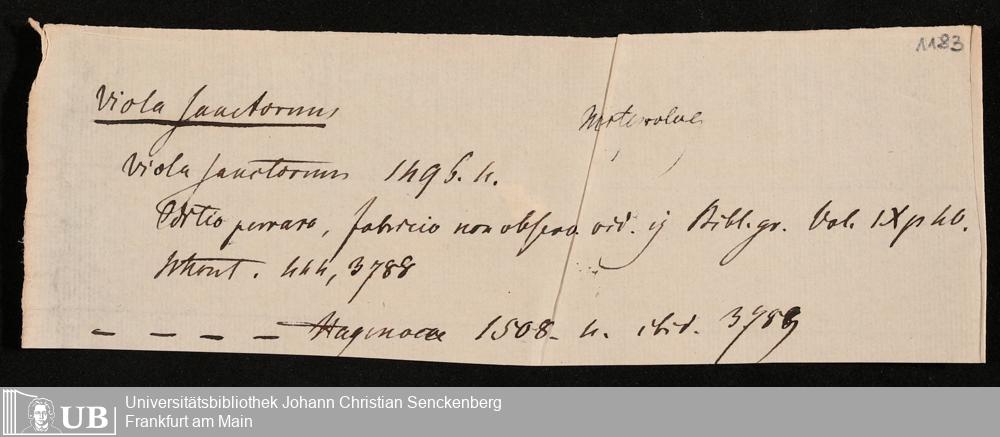 1183
Viola Sanctorum
Viola Sanctorum 1496. 4.
Editio perrara, Fabricio non observ. vid. ej Bibl. gr. Vol. IX p 40.
444, 3788
— — — — Hagenoae 1508. 4. ibid. 3789
UB
Universitätsbibliothek Johann Christian Senckenberg
Frankfurt am Main